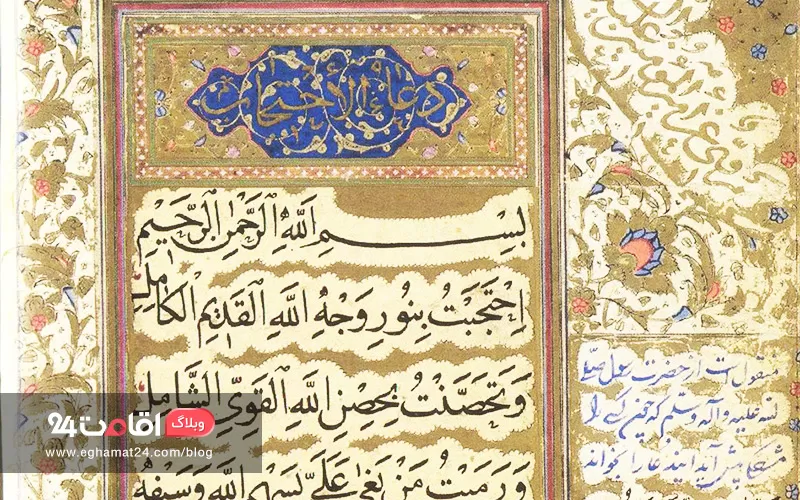 دعاء الأحتجاب
بِسْمِ اللَّهِ الرَّحْمٰنِ الرَّحِيمِ
اِحْتَجَبْتُ بِنُورِ وَجْهِ اللَّهِ الْقَدِيمِ الْكَامِلِ
وَتَحَصَّنْتُ بِحِصْنِ اللَّهِ الْقَوِيِّ الشَّامِلِ
وَرَمَيْتُ مَنْ بَغَىٰ عَلَيَّ بِسَهْمِ اللَّهِ وَسَيْفِهِ
منقول است از حضرت رسول صلی
الله علیه و آله وسلم که چون کسی را
مشکلی پیش آید ایندعا را بخواند
اقامت 24 وبلاگ
www.eghamat24.com/blog